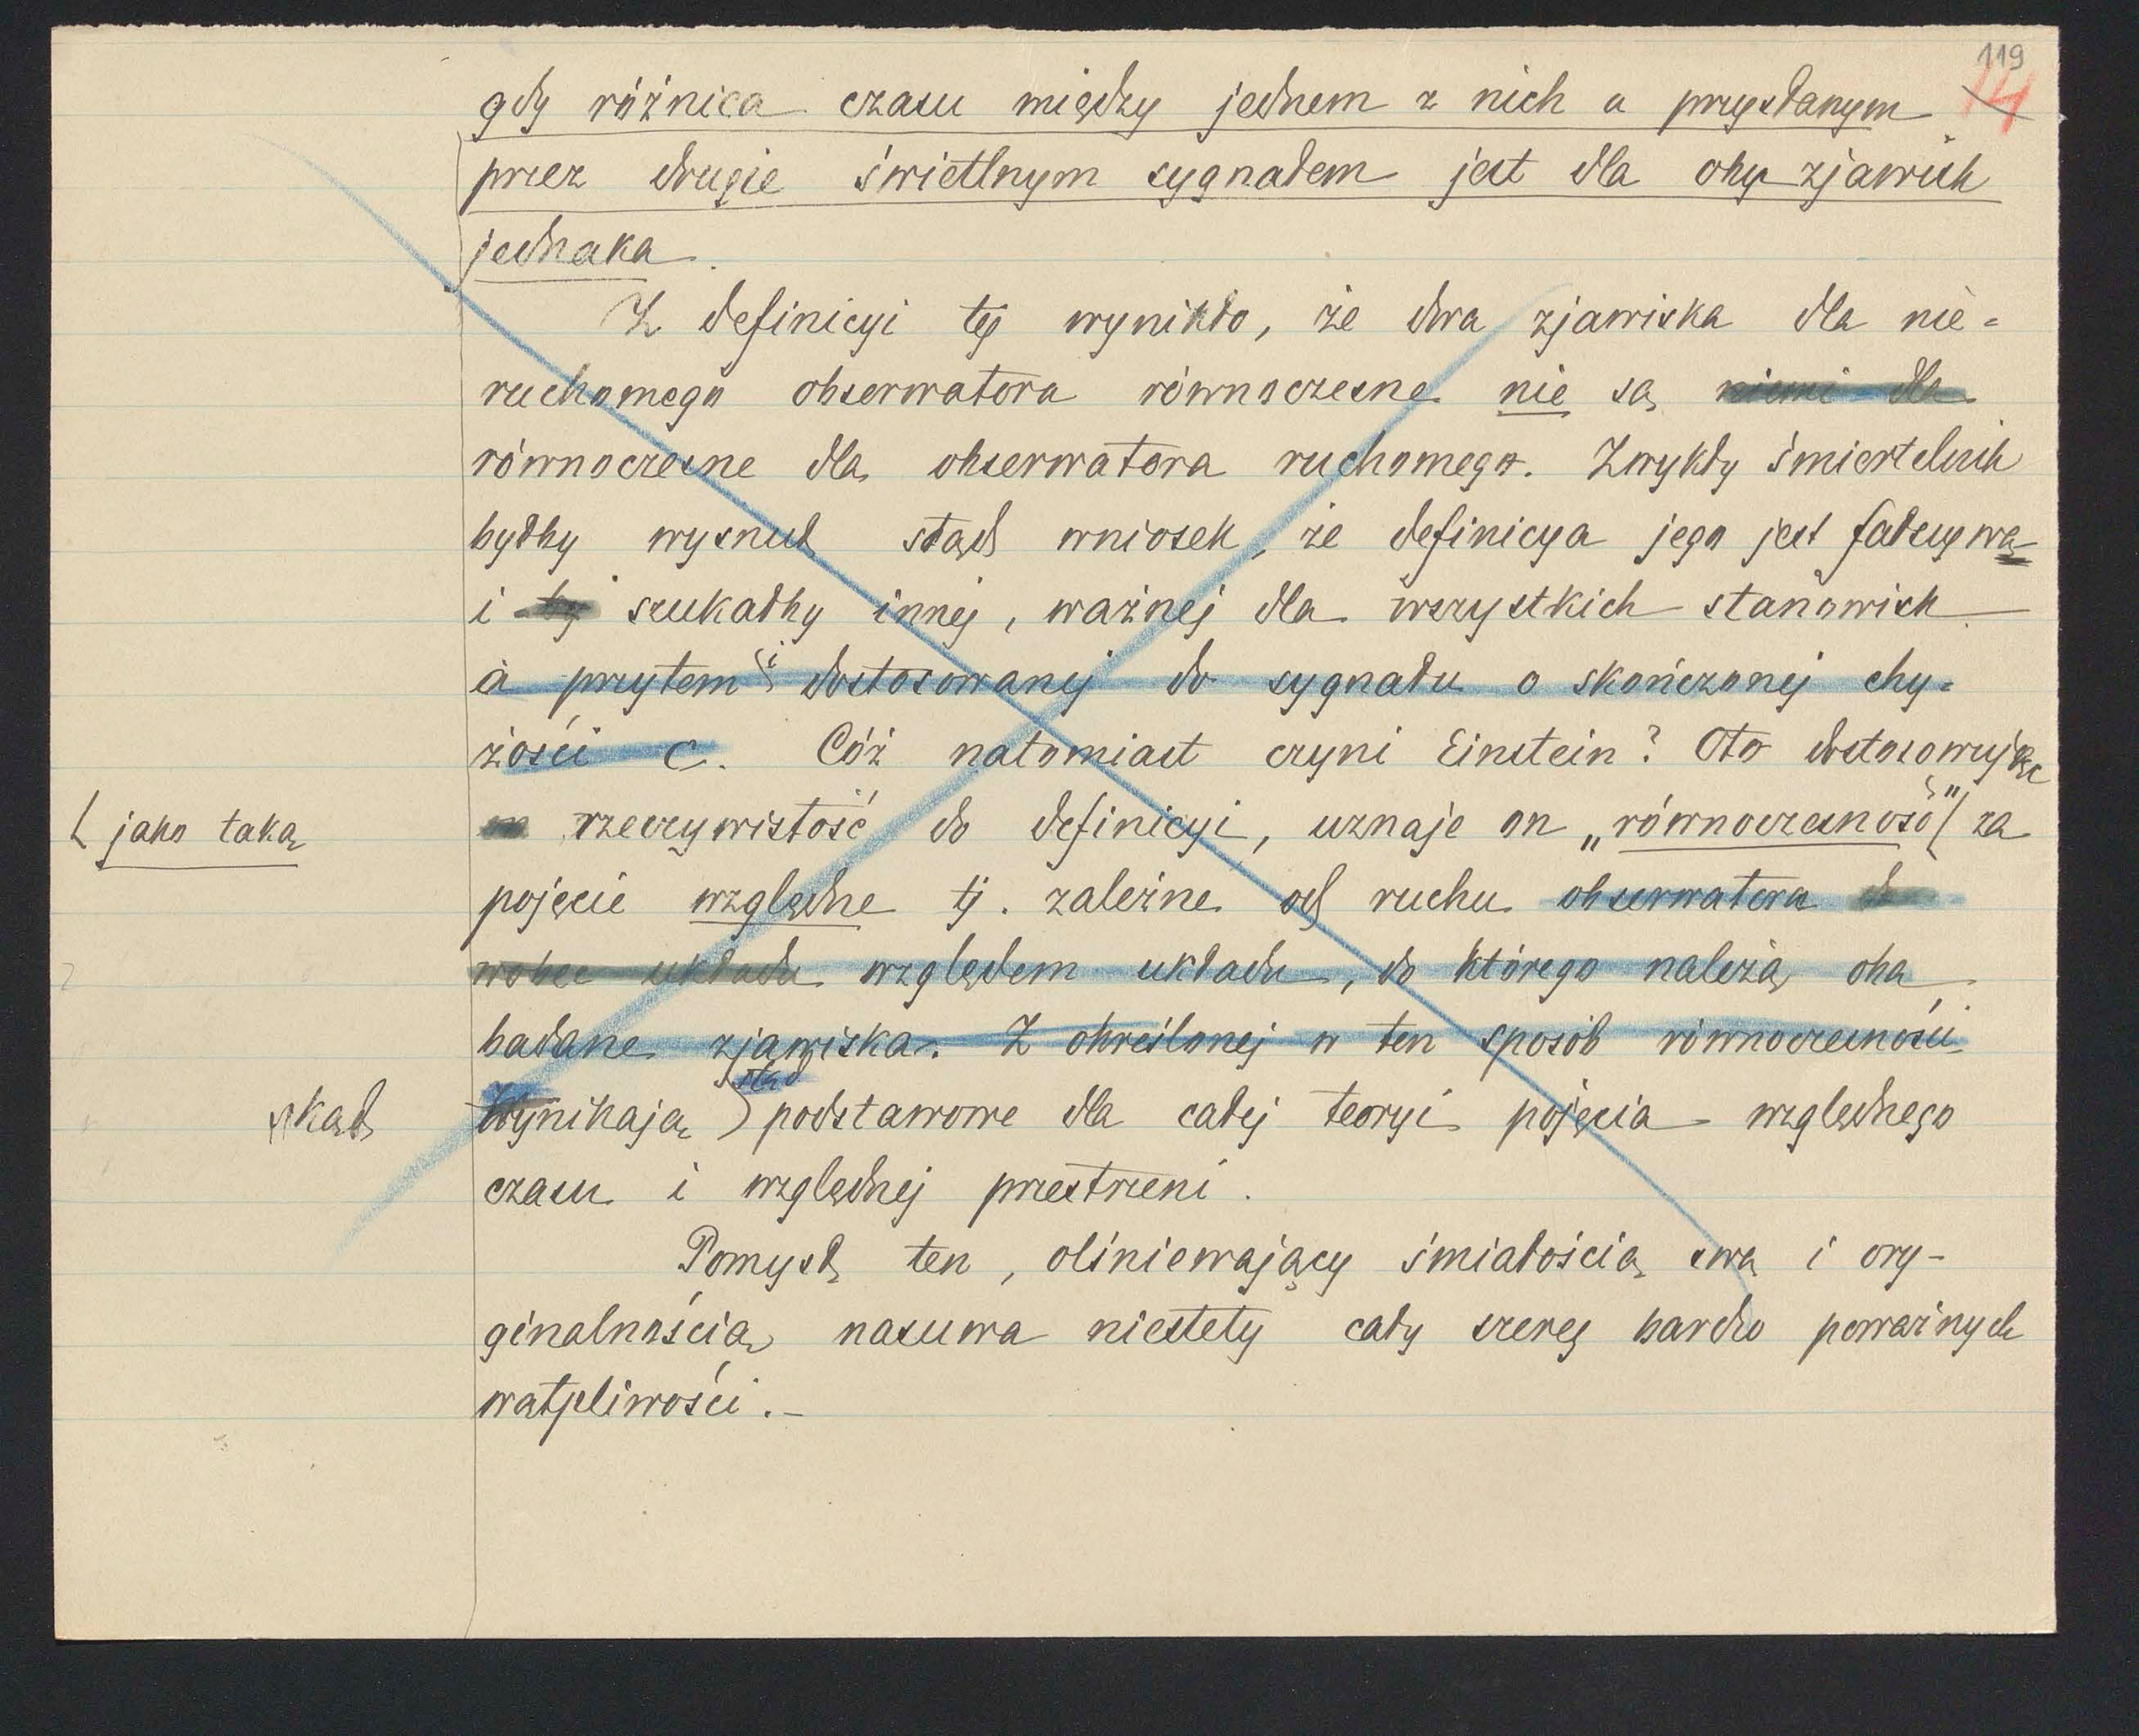 119
14
gdy różnica czasu między jednem z nich a przysłanym
przez drugie świetlnym sygnałem jest dla obu zjawisk
jednaka.
Z definicyi tej wynikło, że dwa zjawiska dla nie-
ruchomego obserwatora równoczesne nie są niemi dla
równoczesne dla obserwatora ruchomego. Zwykły śmiertelnik
byłby wysnuł stąd wniosek, że definicya jego jest fałszywą
i by szukałby innej, ważnej dla wszystkich stanowisk
a przytem i dostosowanej do sygnału o skończonej chy-
żości c. Cóż natomiast czyni Einstein? Oto dostosowując
rzeczywistość do definicyi, uznaje on „równoczesność” za
jako taką
pojęcie względne tj. zależne od ruchu obserwatora
wobec układu względem układu, do którego należą oba
badane zjawiska. Z określonej w ten sposób równoczesności
stąd
skąd
Wynikają podstawowe dla całej teoryi pojęcia względnego
czasu i względnej przestrzeni.
Pomysł ten, olśniewający śmiałością swą i ory-
ginalnością, nasuwa niestety cały szereg bardzo poważnych
wątpliwości.-